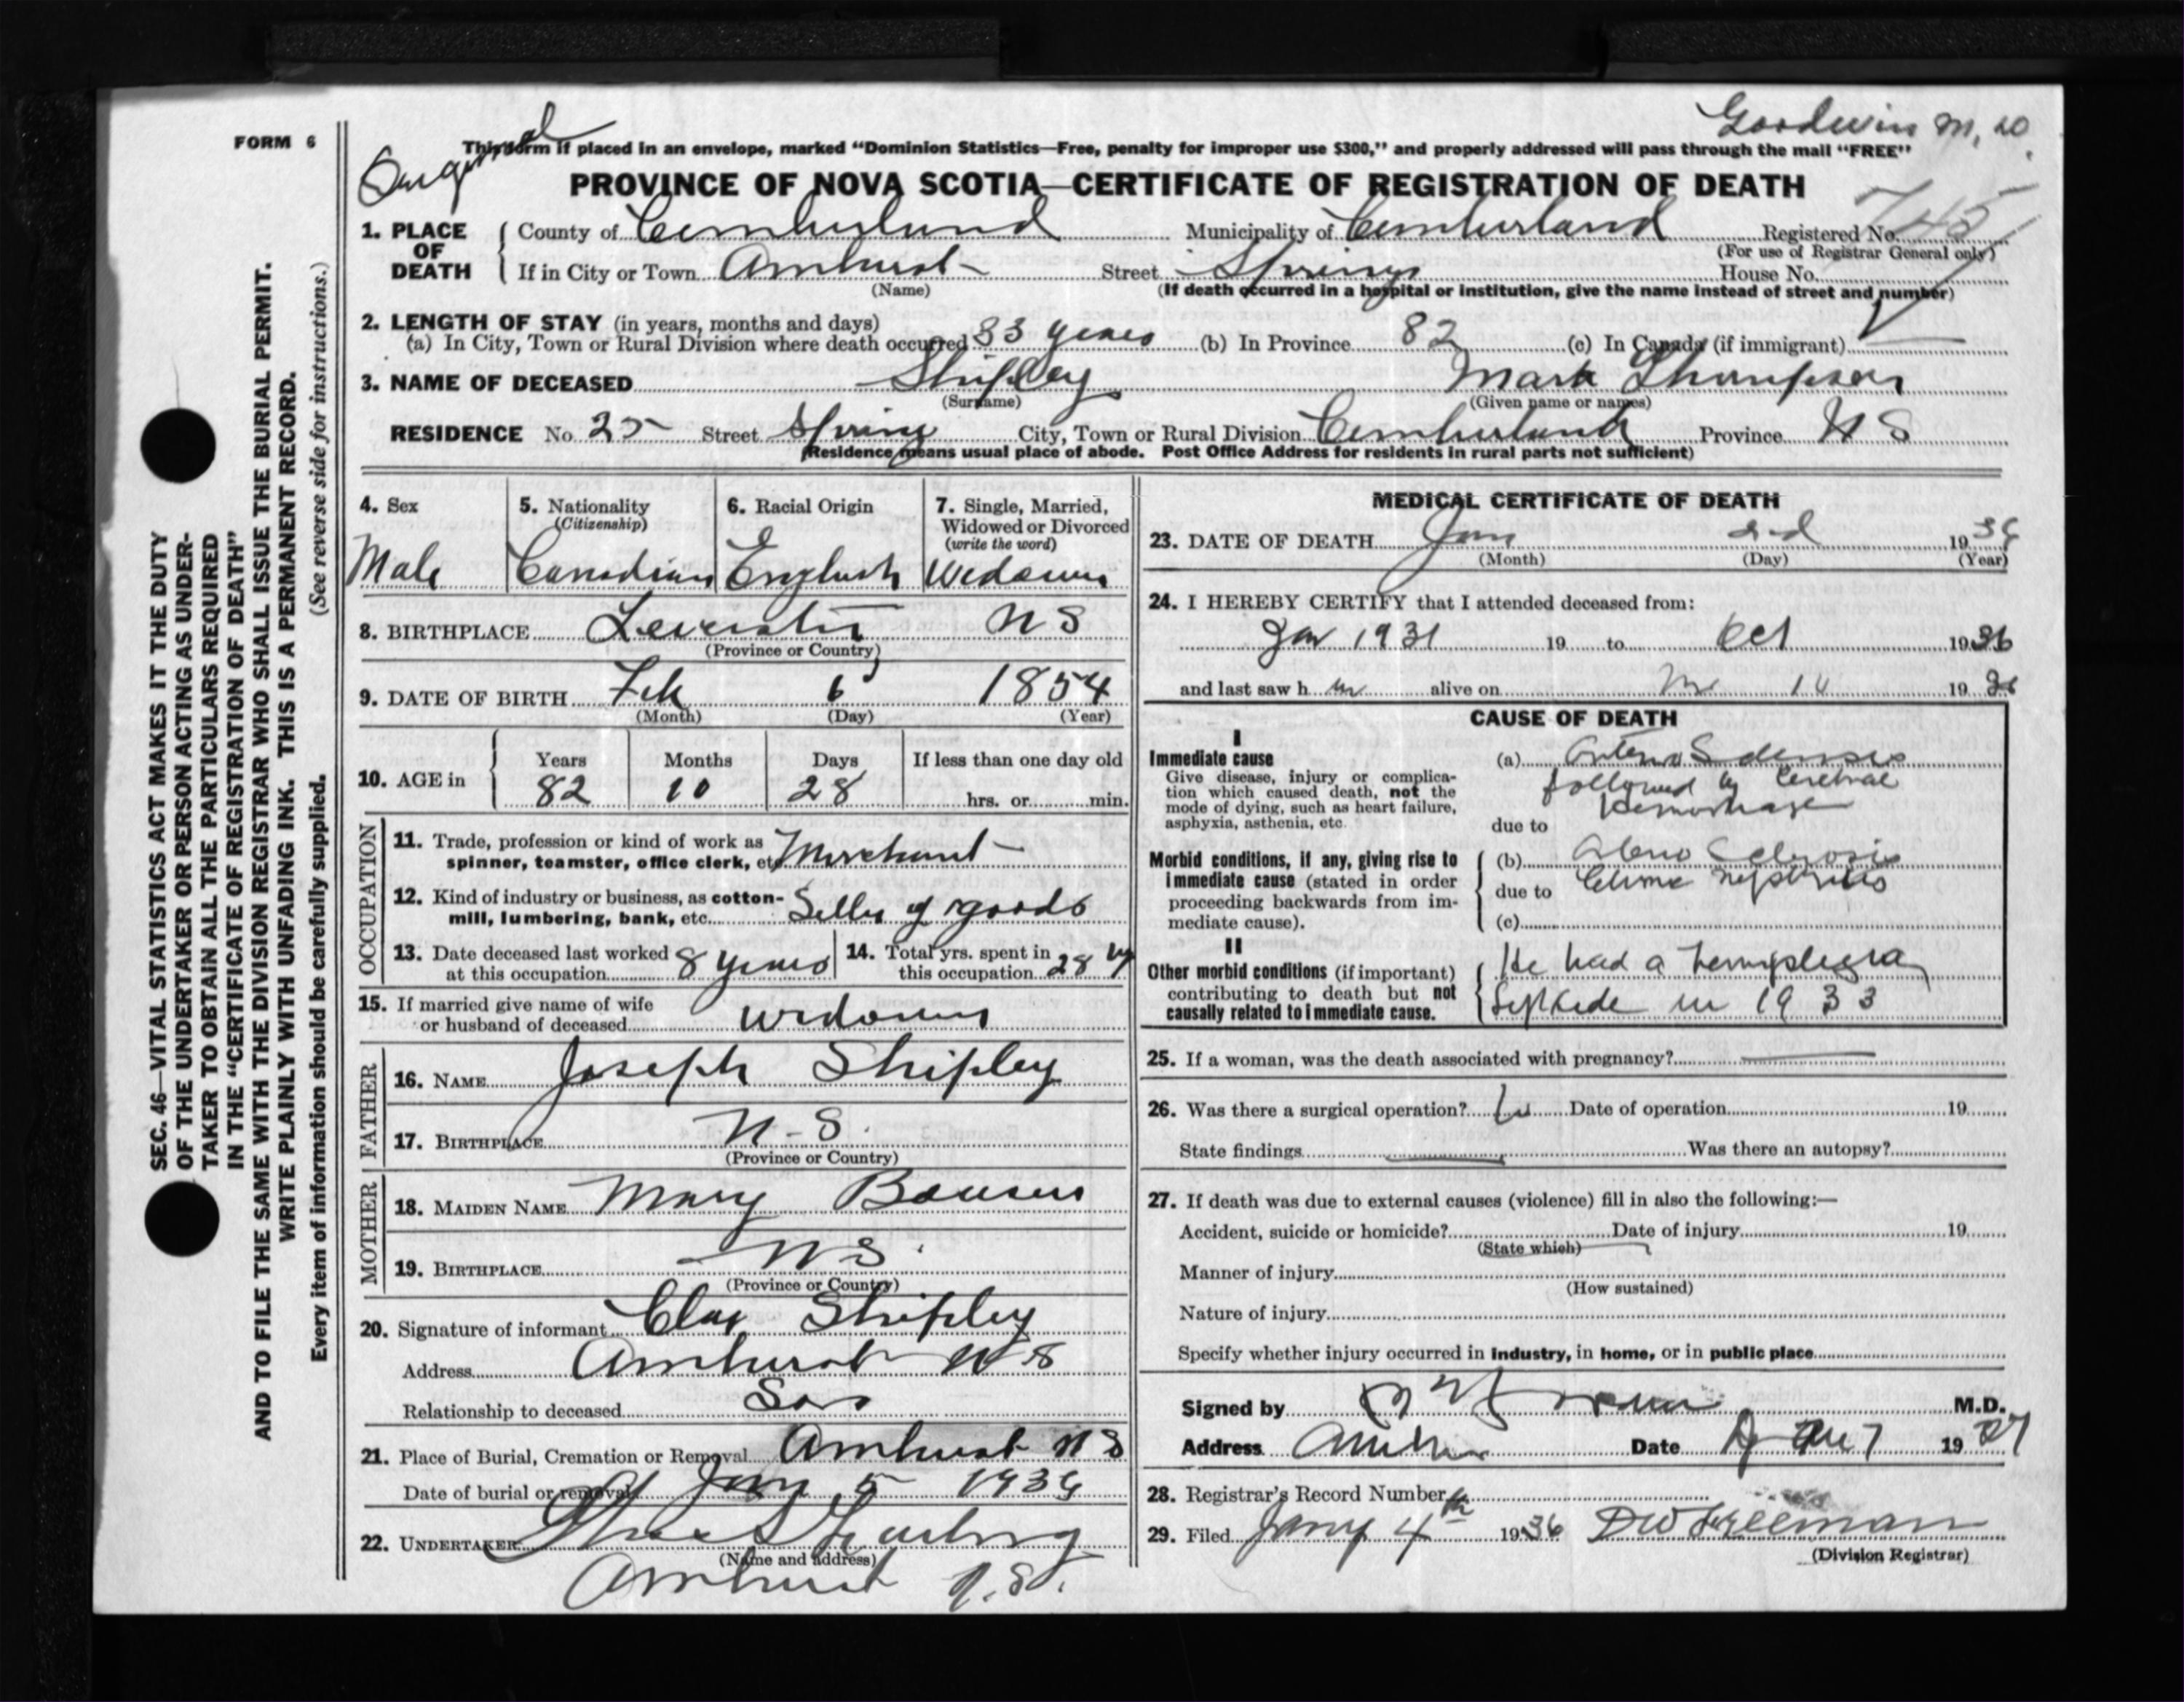 Goodwin M.D.
FORM 6
Original
This form if placed in an envelope, marked "Dominion Statistics—Free, penalty for improper use $300," and properly addressed will pass through the mail "FREE"
PROVINCE OF NOVA SCOTIA—CERTIFICATE OF REGISTRATION OF DEATH
745
1. PLACE OF DEATH { County of Cumberland Municipality of Cumberland Registered No.
(For use of Registrar General only)
If in City or Town Amherst Street Springs House No.
(Name) (If death occurred in a hospital or institution, give the name instead of street and number)
2. LENGTH OF STAY (in years, months and days)
(a) In City, Town or Rural Division where death occurred 33 years (b) In Province 82 (c) In Canada (if immigrant)
3. NAME OF DECEASED Shipley Mark Thompson
(Surname) (Given name or names)
RESIDENCE No. 25 Street Spring City, Town or Rural Division Cumberland Province N S
(Residence means usual place of abode. Post Office Address for residents in rural parts not sufficient)
SEC. 46—VITAL STATISTICS ACT MAKES IT THE DUTY
OF THE UNDERTAKER OR PERSON ACTING AS UNDER-
TAKER TO OBTAIN ALL THE PARTICULARS REQUIRED
IN THE "CERTIFICATE OF REGISTRATION OF DEATH"
AND TO FILE THE SAME WITH THE DIVISION REGISTRAR WHO SHALL ISSUE THE BURIAL PERMIT.
WRITE PLAINLY WITH UNFADING INK. THIS IS A PERMANENT RECORD.
Every item of information should be carefully supplied. (See reverse side for instructions.)
4. Sex
Male
5. Nationality
(Citizenship)
Canadian
6. Racial Origin
English
7. Single, Married,
Widowed or Divorced
(write the word)
Widower
8. BIRTHPLACE N S
(Province or Country)
9. DATE OF BIRTH Feb 6 1854
(Month) (Day) (Year)
10. AGE in { Years Months Days If less than one day old
82 10 28 hrs. or min.
OCCUPATION
11. Trade, profession or kind of work as
spinner, teamster, office clerk, etc. Merchant
12. Kind of industry or business, as cotton-
mill, lumbering, bank, etc. Seller of goods
13. Date deceased last worked
at this occupation 8 years
14. Total yrs. spent in
this occupation 28
15. If married give name of wife
or husband of deceased widower
FATHER
16. NAME Joseph Shipley
17. BIRTHPLACE N.S.
(Province or Country)
MOTHER
18. MAIDEN NAME Mary
19. BIRTHPLACE N S.
(Province or Country)
20. Signature of informant Clay Shipley
Address Amherst N S
Relationship to deceased Son
21. Place of Burial, Cremation or Removal Amherst N S
Date of burial or removal Jany 5 1936
22. UNDERTAKER
(Name and address)
Amherst N.S.
MEDICAL CERTIFICATE OF DEATH
23. DATE OF DEATH Jan 2nd 1936
(Month) (Day) (Year)
24. I HEREBY CERTIFY that I attended deceased from:
Jan 1931 19 to Oct 1936
and last saw h im alive on 19
CAUSE OF DEATH
I
Immediate cause
Give disease, injury or complica-
tion which caused death, not the
mode of dying, such as heart failure,
asphyxia, asthenia, etc.
(a) Arterio Sclerosis
followed by Cerebral
Hemorrhage
due to
Morbid conditions, if any, giving rise to
immediate cause (stated in order
proceeding backwards from im-
mediate cause).
(b) Arterio Sclerosis
due to Chronic Nephritis
(c)
II
Other morbid conditions (if important)
contributing to death but not
causally related to immediate cause.
He had a hemiplegia
in 1933
25. If a woman, was the death associated with pregnancy?
26. Was there a surgical operation? Date of operation 19
State findings Was there an autopsy?
27. If death was due to external causes (violence) fill in also the following:—
Accident, suicide or homicide? Date of injury 19
(State which)
Manner of injury
(How sustained)
Nature of injury
Specify whether injury occurred in industry, in home, or in public place
Signed by M.D.
Address Amherst Date 7 1937
28. Registrar's Record Number
29. Filed Jany 4th 1936 D W Freeman
(Division Registrar)